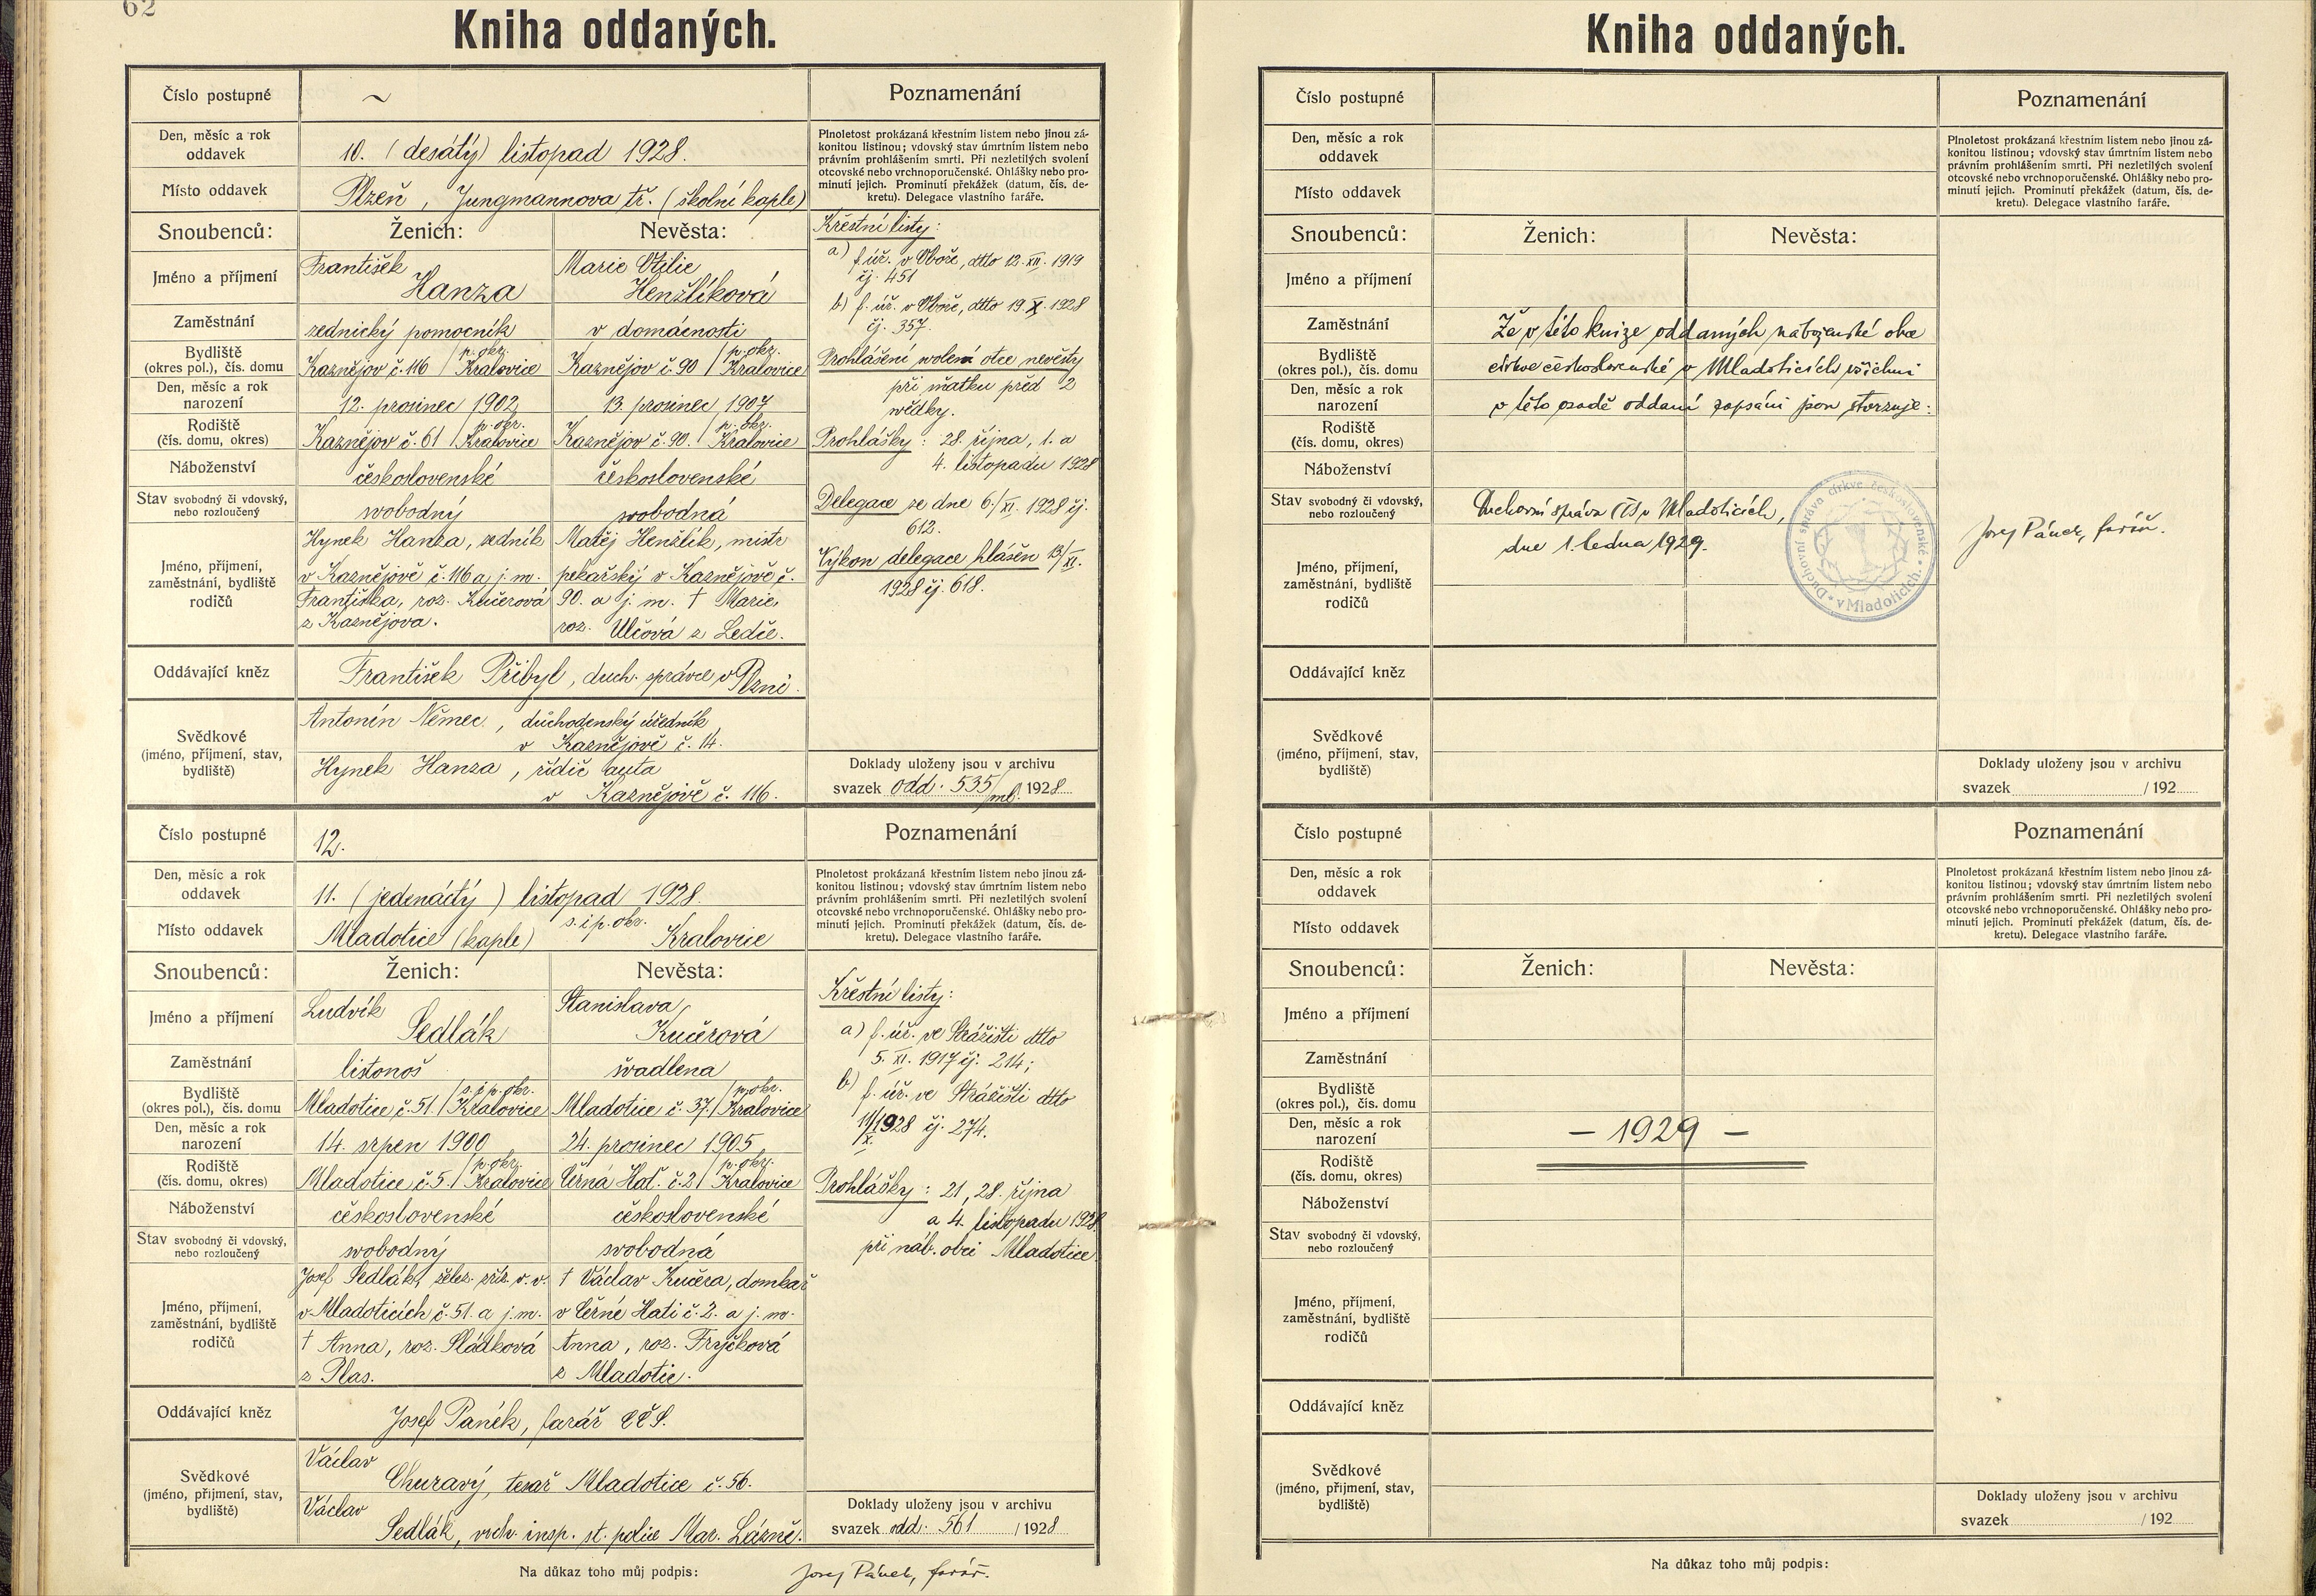 62
Kniha oddaných.
Číslo postupné ~
Poznamenání
Den, měsíc a rok oddavek
10. (desátý) listopad 1928.
Místo oddavek
Plzeň, Jungmannova tř. (školní kaple)
Plnoletost prokázaná křestním listem nebo jinou zá-
konitou listinou; vdovský stav úmrtním listem nebo
právním prohlášením smrti. Při nezletilých svolení
otcovské nebo vrchnoporučenské. Ohlášky nebo pro-
minutí jejich. Prominutí překážek (datum, čís. de-
kretu). Delegace vlastního faráře.
Snoubenců: Ženich: Nevěsta:
Jméno a příjmení
František Hanza
Marie Otilie Henžlíková
Zaměstnání
zednický pomocník
v domácnosti
Bydliště (okres pol.), čís. domu
Kaznějov č. 116 / p. okr. Kralovice
Kaznějov č. 90 / p. okr. Kralovice
Den, měsíc a rok narození
12. prosinec 1902
13. prosinec 1907
Rodiště (čís. domu, okres)
Kaznějov č. 61 / p. okr. Kralovice
Kaznějov č. 90. / p. okr. Kralovice
Náboženství
československé
československé
Stav svobodný či vdovský, nebo rozloučený
svobodný
svobodná
Jméno, příjmení, zaměstnání, bydliště rodičů
Hynek Hanza, zedník
v Kaznějově č. 116 a j. m.
Františka, roz. Kučerová
z Kaznějova.
Matěj Henžlík, mistr
pekařský v Kaznějově č.
90. a j. m. † Marie,
roz. Ulčová z Ledče.
Oddávající kněz
František Přibyl, duch. správce v Plzni.
Svědkové (jméno, příjmení, stav, bydliště)
Antonín Němec, důchodenský úředník
v Kaznějově č. 14.
Hynek Hanza, řidič auta
v Kaznějově č. 116.
Křestní listy:
a) f. úř. v Oboře, dtto 12. XII. 1919
čj. 451
b) f. úř. v Oboře, dtto 19. X. 1928
čj. 357.
Prohlášení svolení otce nevěsty
při sňatku před 2
svědky.
Prohlášky: 28. října, 1. a
4. listopadu 1928
Delegace ze dne 6./XI. 1928 čj.
612.
Výkon delegace hlášen 13/XI.
1928 čj. 618.
Doklady uloženy jsou v archivu
svazek odd. 535/ml. 1928
Číslo postupné 12.
Poznamenání
Den, měsíc a rok oddavek
11. (jedenáctý) listopad 1928.
Místo oddavek
Mladotice (kaple) s. i p. okr. Kralovice
Plnoletost prokázaná křestním listem nebo jinou zá-
konitou listinou; vdovský stav úmrtním listem nebo
právním prohlášením smrti. Při nezletilých svolení
otcovské nebo vrchnoporučenské. Ohlášky nebo pro-
minutí jejich. Prominutí překážek (datum, čís. de-
kretu). Delegace vlastního faráře.
Snoubenců: Ženich: Nevěsta:
Jméno a příjmení
Ludvík Sedlák
Stanislava Kučerová
Zaměstnání
listonoš
švadlena
Bydliště (okres pol.), čís. domu
Mladotice č. 51. / s. i p. okr. Kralovice
Mladotice č. 37. / p. okr. Kralovice
Den, měsíc a rok narození
14. srpen 1900
24. prosinec 1905
Rodiště (čís. domu, okres)
Mladotice č. 5. / p. okr. Kralovice
Černá Hať. č. 2 / p. okr. Kralovice
Náboženství
československé
československé
Stav svobodný či vdovský, nebo rozloučený
svobodný
svobodná
Jméno, příjmení, zaměstnání, bydliště rodičů
Josef Sedlák, želez. zříz. v. v.
v Mladoticích č. 51. a j. m.
† Anna, roz. Sládková
z Plas.
† Václav Kučera, domkař
v Černé Hati č. 2. a j. m.
Anna, roz. Fryčková
z Mladotic.
Oddávající kněz
Josef Pánek, farář CČS.
Svědkové (jméno, přijmení, stav, bydliště)
Václav
Churavý, tesař Mladotice č. 56.
Václav
Sedlák, vrch. insp. st. police Mar. Lázně.
Křestní listy:
a) f. úř. ve Strážišti dtto
5. XI. 1917 čj. 214;
b) f. úř. ve Strážišti dtto
11/X. 1928 čj. 274.
Prohlášky: 21, 28. října
a 4. listopadu 1928
při náb. obci Mladotice.
Doklady uloženy jsou v archivu
svazek odd. 561 / 1928
Na důkaz toho můj podpis: Josef Pánek, farář.
Kniha oddaných.
Číslo postupné
Poznamenání
Den, měsíc a rok oddavek
Místo oddavek
Plnoletost prokázaná křestním listem nebo jinou zá-
konitou listinou; vdovský stav úmrtním listem nebo
právním prohlášením smrti. Při nezletilých svolení
otcovské nebo vrchnoporučenské. Ohlášky nebo pro-
minutí jejich. Prominutí překážek (datum, čís. de-
kretu). Delegace vlastního faráře.
Snoubenců: Ženich: Nevěsta:
Jméno a příjmení
Zaměstnání
Bydliště (okres pol.), čís. domu
Den, měsíc a rok narození
Rodiště (čís. domu, okres)
Náboženství
Stav svobodný či vdovský, nebo rozloučený
Jméno, příjmení, zaměstnání, bydliště rodičů
Oddávající kněz
Svědkové (jméno, příjmení, stav, bydliště)
Že v této knize oddaných náboženské obce
církve československé v Mladoticích všichni
v této osadě oddaní zapsáni jsou stvrzuje:
Duchovní správa CČS v Mladoticích,
dne 1. ledna 1929.
Duchovní správa církve československé v Mladoticích.
Josef Pánek, farář.
Doklady uloženy jsou v archivu
svazek / 192
Číslo postupné
Poznamenání
Den, měsíc a rok oddavek
Místo oddavek
Plnoletost prokázaná křestním listem nebo jinou zá-
konitou listinou; vdovský stav úmrtním listem nebo
právním prohlášením smrti. Při nezletilých svolení
otcovské nebo vrchnoporučenské. Ohlášky nebo pro-
minutí jejich. Prominutí překážek (datum, čís. de-
kretu). Delegace vlastního faráře.
Snoubenců: Ženich: Nevěsta:
Jméno a příjmení
Zaměstnání
Bydliště (okres pol.), čís. domu
Den, měsíc a rok narození
– 1929 –
Rodiště (čís. domu, okres)
Náboženství
Stav svobodný či vdovský, nebo rozloučený
Jméno, příjmení, zaměstnání, bydliště rodičů
Oddávající kněz
Svědkové (jméno, příjmení, stav, bydliště)
Doklady uloženy jsou v archivu
svazek / 192
Na důkaz toho můj podpis: